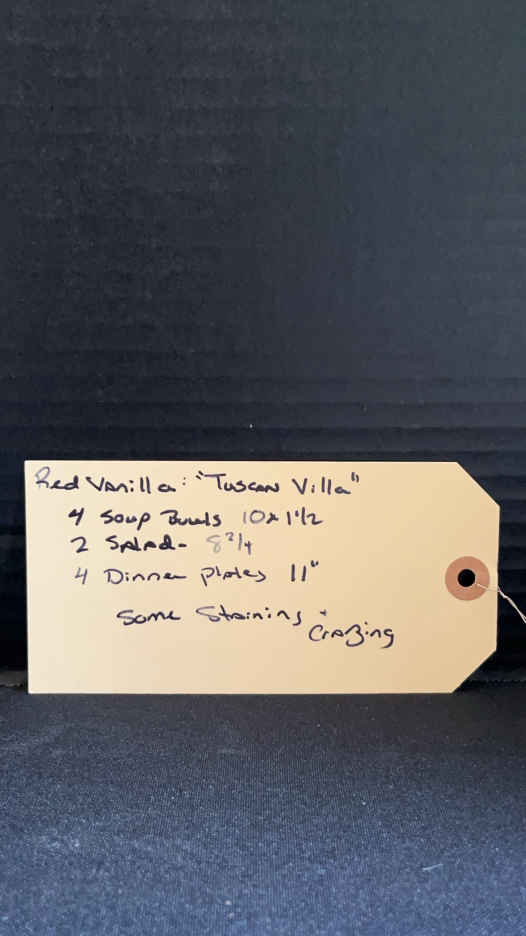 Red Vanilla: "Tuscan Villa"
4 Soup Bowls 10x 1 1/2
2 Salad- 8 3/4
4 Dinner Plates 11"
Some Staining +
Crazing